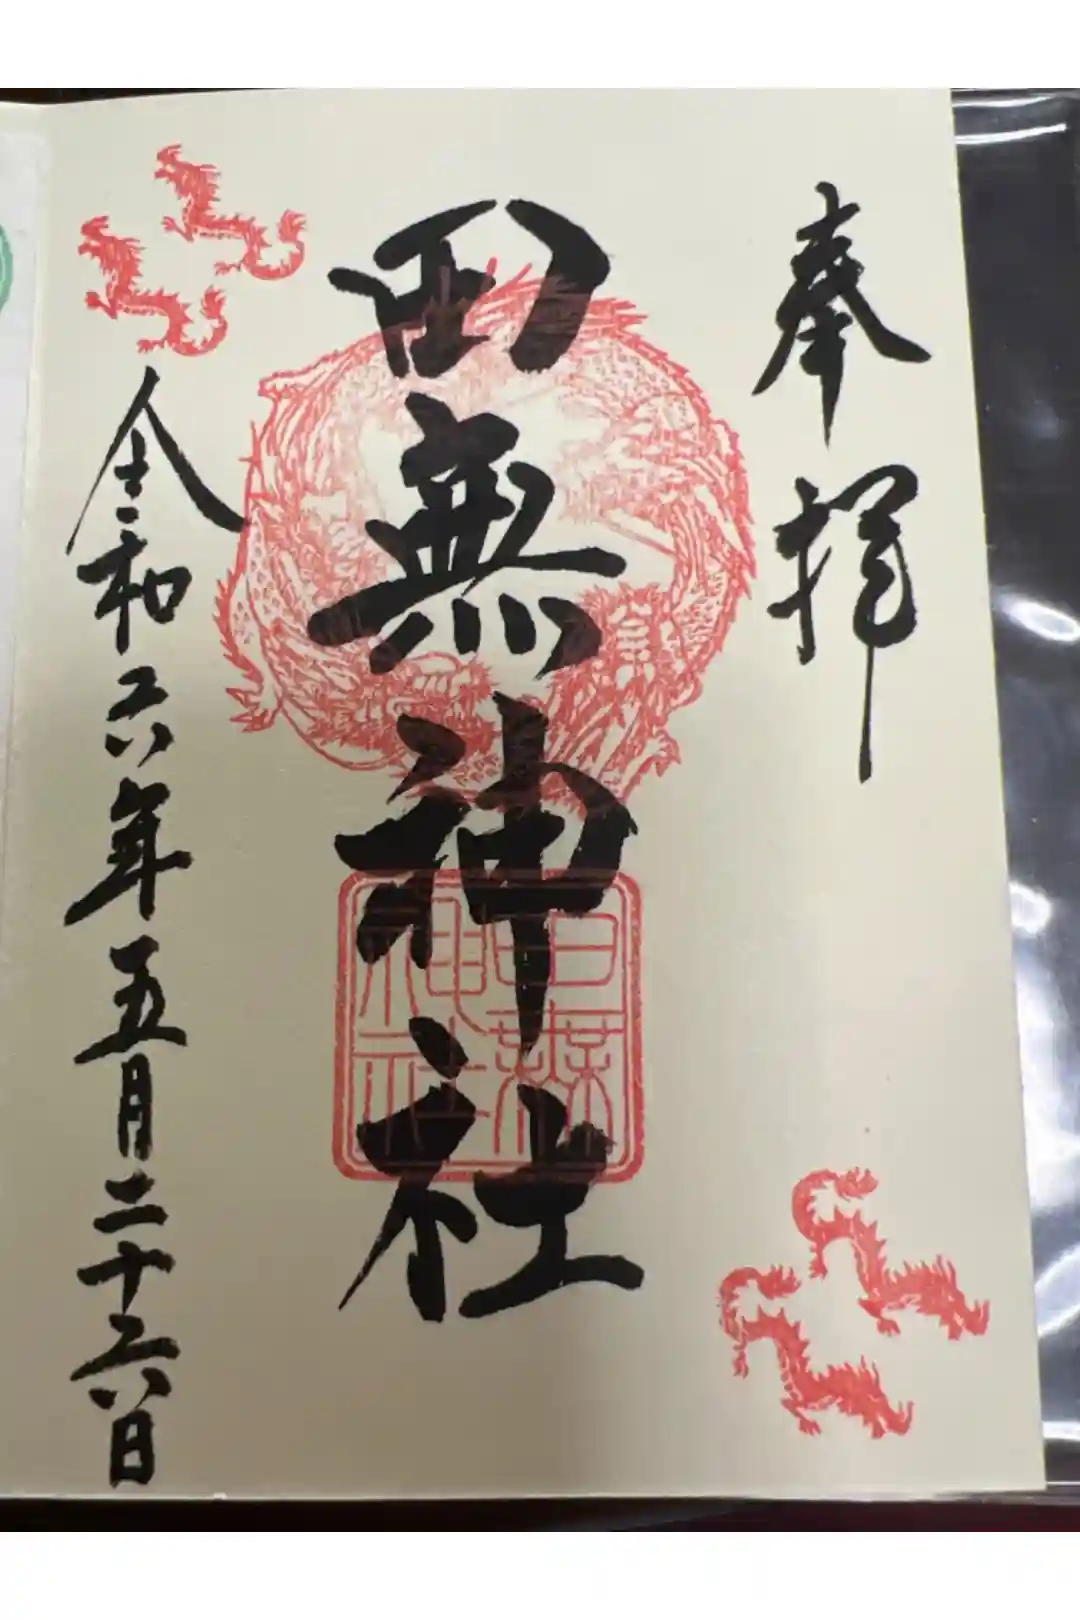 奉拝
田無神社
田無神社
令和六年五月二十六日